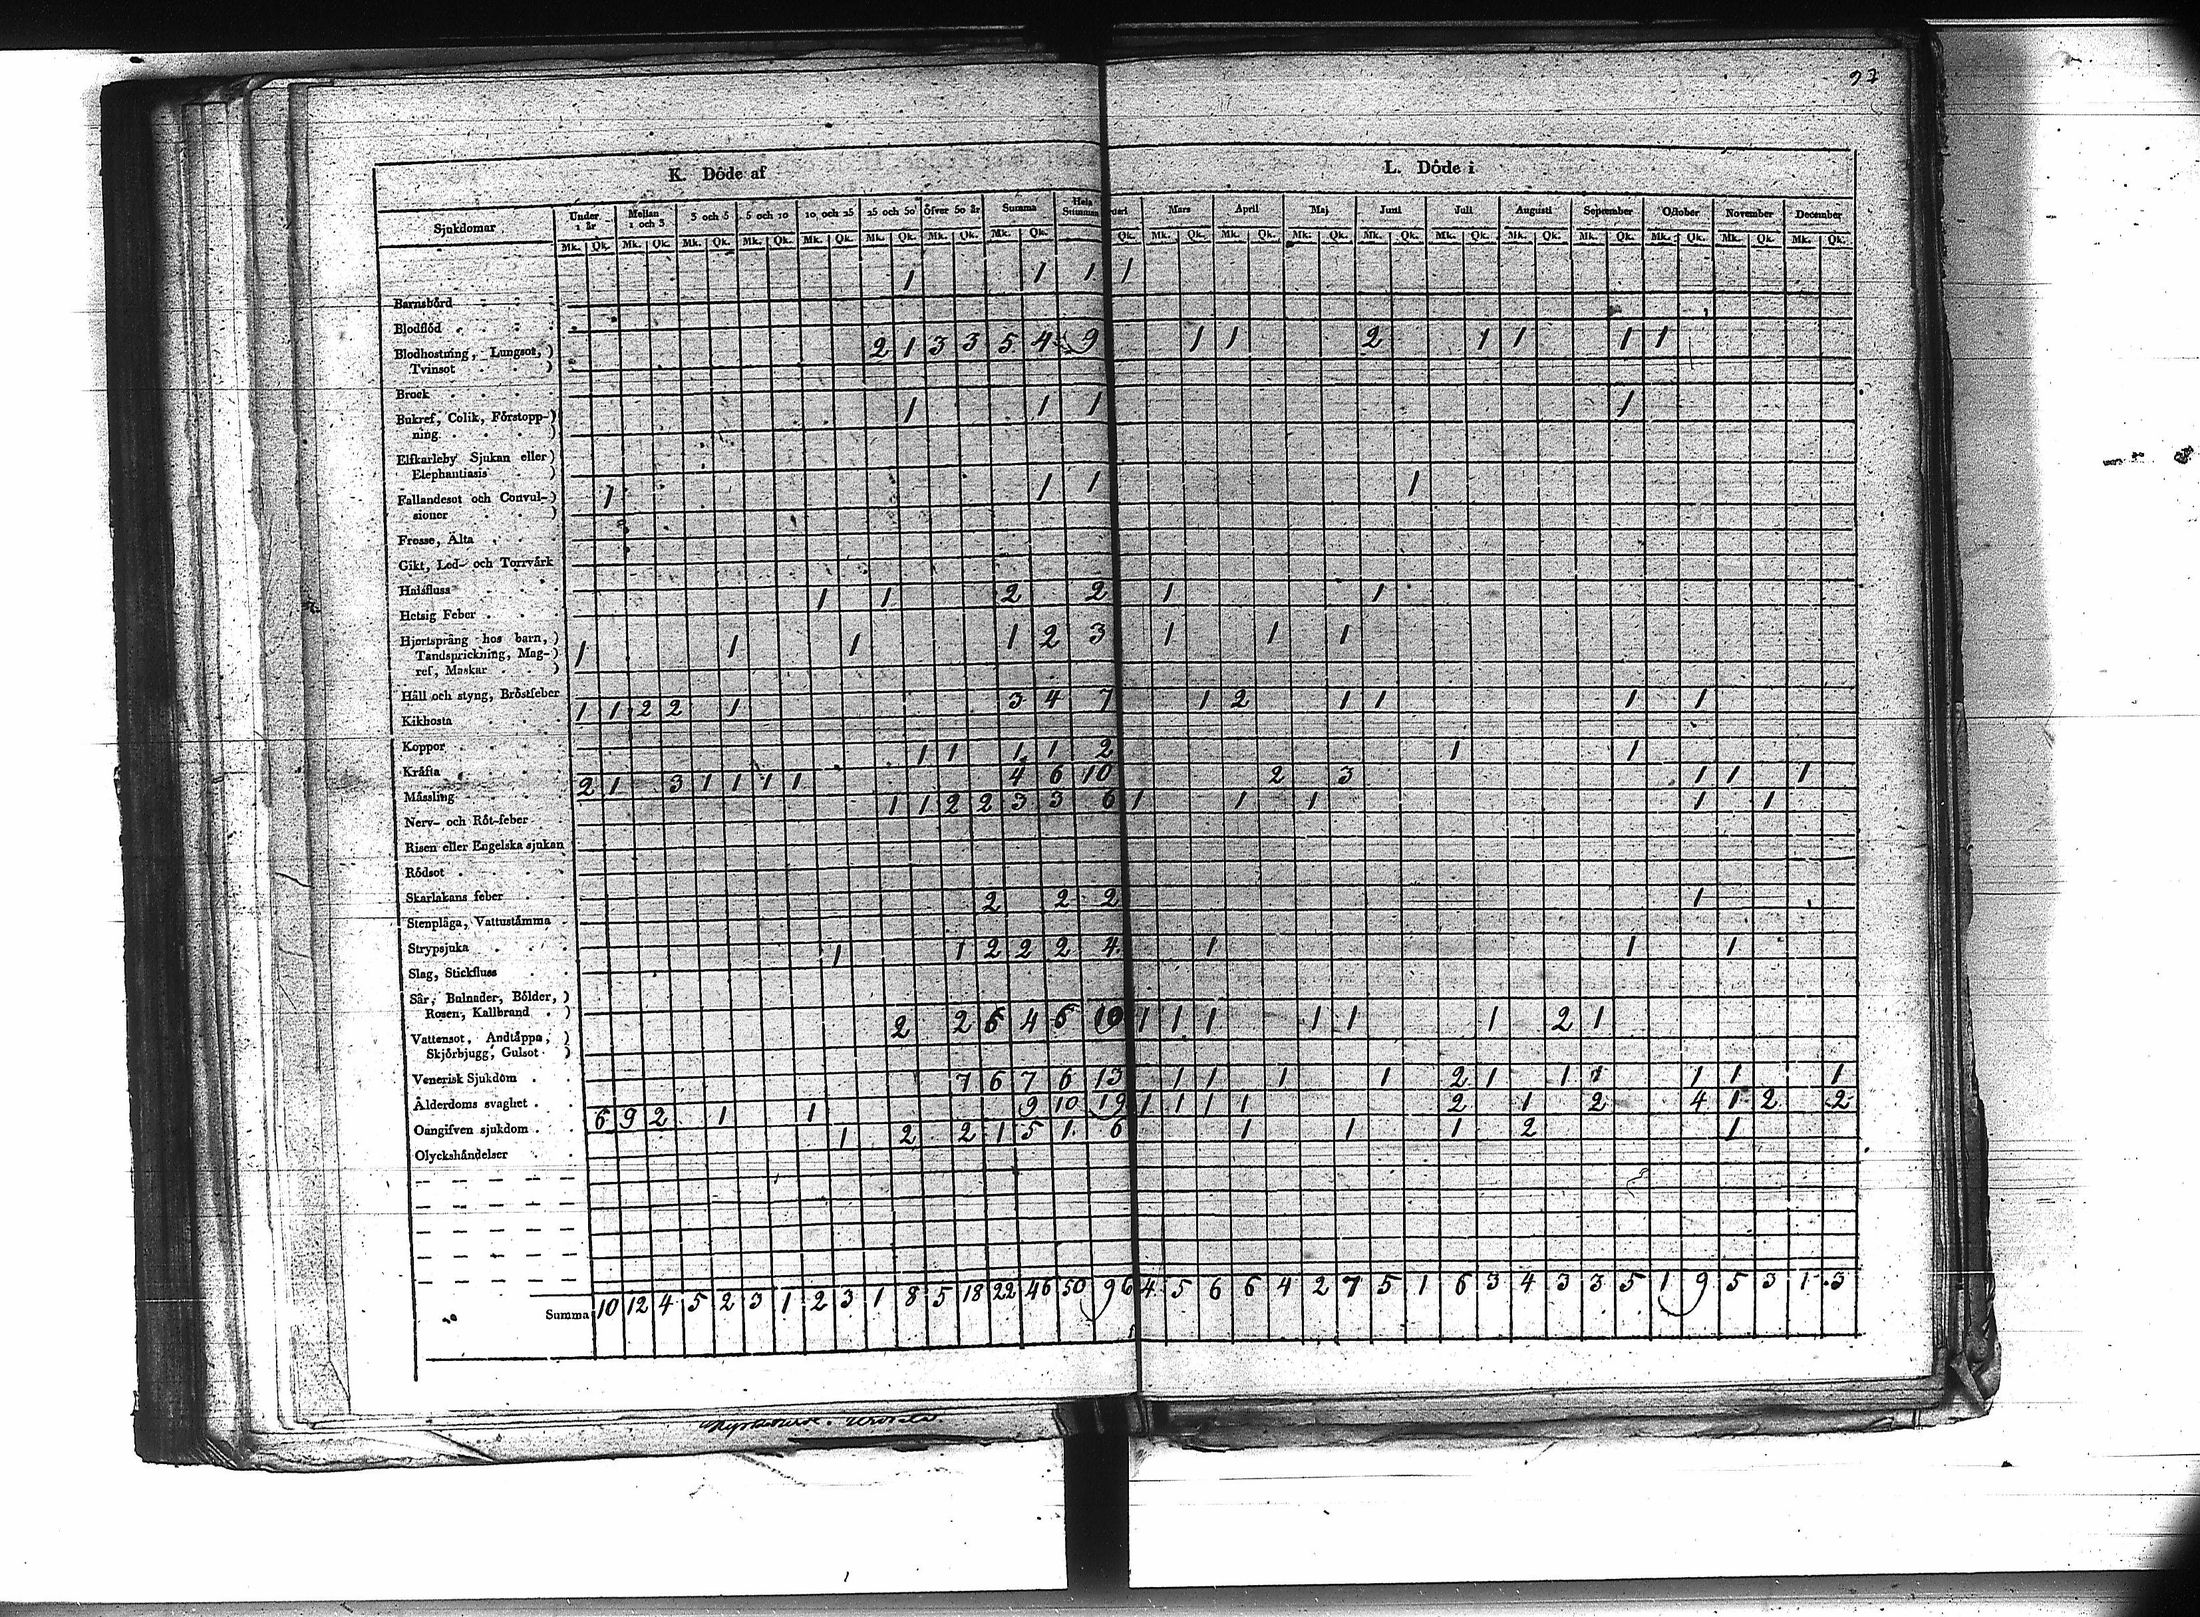 27
K. Döde af
L. Döde i
Sjukdomar Under 1 år Mellan 1 och 3 3 och 5 5 och 10 10 och 25 25 och 50 Öfver 50 år Summa Hela Summan uari Mars April Maj Juni Juli Augusti September October November December
Mk. Qk. Mk. Qk. Mk. Qk. Mk. Qk. Mk. Qk. Mk. Qk. Mk. Qk. Mk. Qk. Qk. Mk. Qk. Mk. Qk. Mk. Qk. Mk. Qk. Mk. Qk. Mk. Qk. Mk. Qk. Mk. Qk. Mk. Qk. Mk. Qk.
1 1 1 1
Barnsbörd
Blodflöd
Blodhostning, Lungsot, ) 2 1 3 3 5 4 9 1 1 2 1 1 1 1
Tvinsot )
Brock
Bukref, Colik, Förstopp-) 1 1 1 1
ning )
Elfkarleby Sjukan eller )
Elephantiasis )
Fallandesot och Convul-) 1 1 1 1
sioner )
Frosse, Älta
Gikt, Led- och Torrvärk
Halsfluss 1 1 2 2 1 1
Hetsig Feber
Hjertsprång hos barn, ) 1 1 1 1 2 3 1 1 1
Tandsprickning, Mag-)
ref, Maskar )
Håll och styng, Bröstfeber 1 1 2 2 1 3 4 7 1 2 1 1 1 1
Kikhosta
Koppor 1 1 1 1 2 1 1
Kräfta 2 1 3 1 1 1 1 4 6 10 2 3 1 1 1
Mässling 1 1 2 2 3 3 6 1 1 1 1 1
Nerv- och Röt-feber
Risen eller Engelska sjukan
Rödsot
Skarlakans feber 2 2 2 1
Stenplåga, Vattustämma
Strypsjuka 1 1 2 2 2 4 1 1 1
Slag, Stickfluss
Sår, Bulnader, Bölder, )
Rosen, Kallbrand )
Vattensot, Andtäppa, ) 2 2 6 4 6 10 1 1 1 1 1 1 2 1
Skjörbjugg, Gulsot )
Venerisk Sjukdom 7 6 7 6 13 1 1 1 1 2 1 1 1 1 1 1
Ålderdoms svaghet 6 9 2 1 1 9 10 19 1 1 1 1 2 1 2 4 1 2 2
Oangifven sjukdom 1 2 2 1 5 1 6 1 1 1 2 1
Olyckshändelser
Summa 10 12 4 5 2 3 1 2 3 1 8 5 18 22 46 50 96 4 5 6 6 4 2 7 5 1 6 3 4 3 3 5 1 9 5 3 1 3